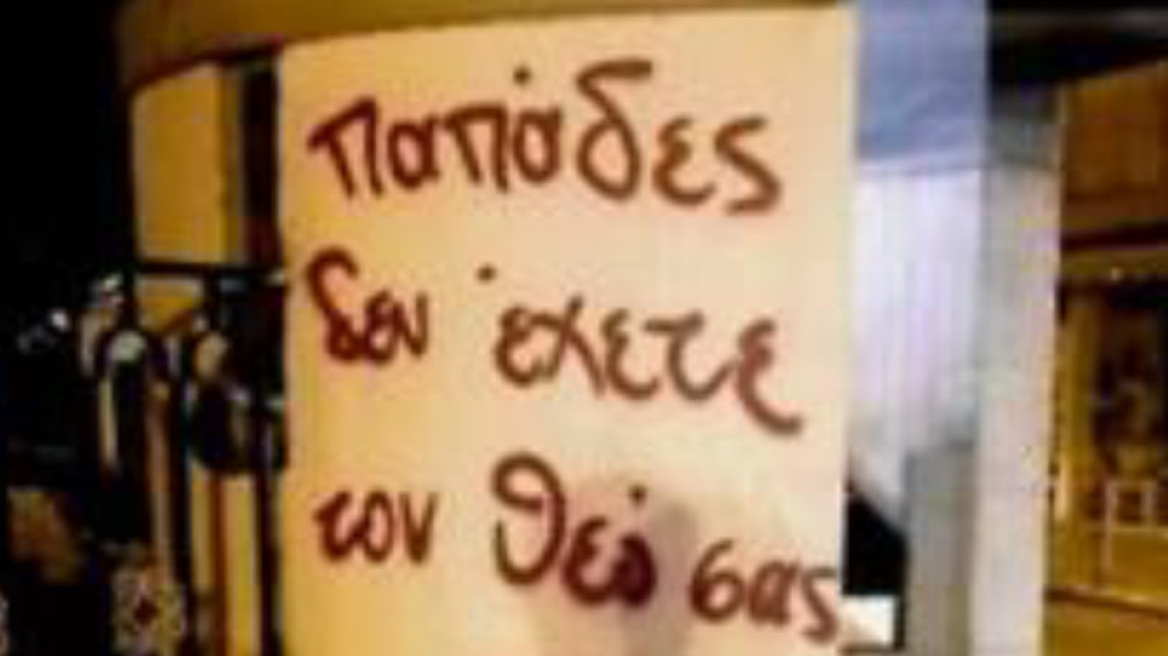 παπάδες
δεν έχετε
τον θεό σας